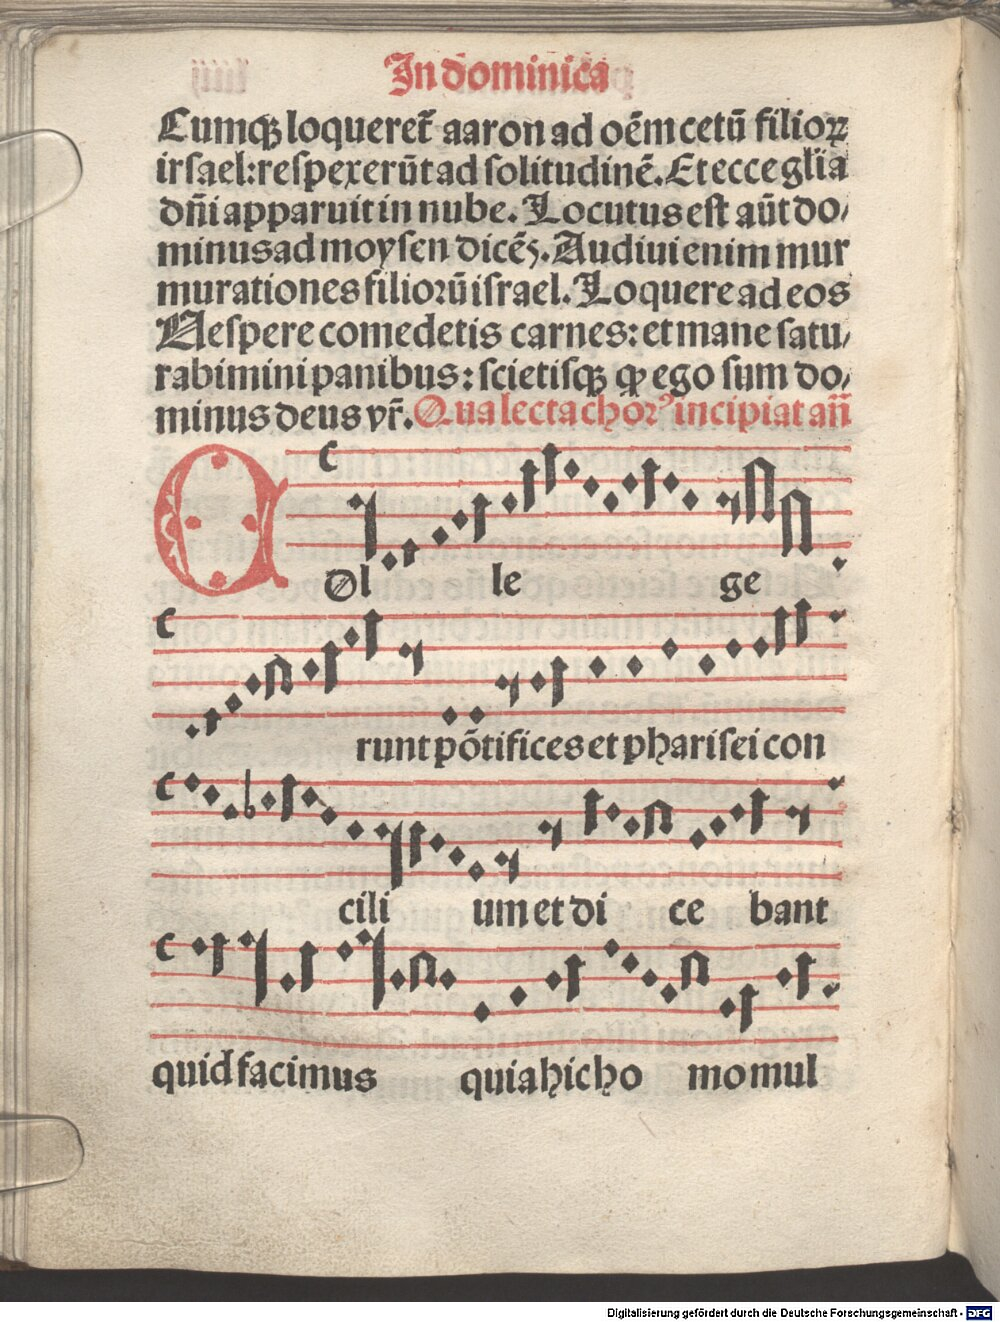 In dominica
Cumqꝫ loqueret̄ aaron ad oēm cetū filioꝝ
irsael: respexerūt ad solitudinē. Et ecce gl̄ia
dn̄i apparuit in nube. Locutus est aūt do/
minus ad moysen dicēs. Audiui enim mur
murationes filiorū israel. Loquere ad eos
Uespere comedetis carnes: et mane satu/
rabimini panibus: scietisqꝫ ꝙ ego sum do/
minus deus vr̄. Qua lecta chorꝰ incipiat an̄
Col le ge
runt pōtifices et pharisei con
cili um et di ce bant
quid facimus quia hic ho mo mul
Digitalisierung gefördert durch die Deutsche Forschungsgemeinschaft - DFG